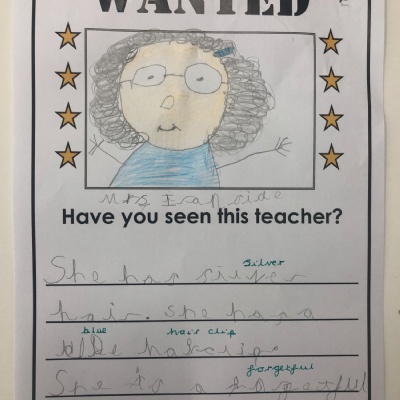 WANTED
Mrs
Have you seen this teacher?
silver
She has silver
hair. She has a
blue hair clip
forgetful
She is a forgetful